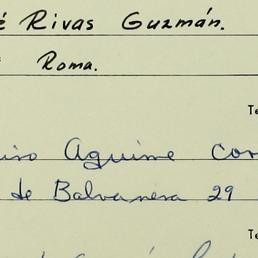 é Rivas Guzmán.
Roma.
Te
Aguirre Cor
de Balvanera 29
Te